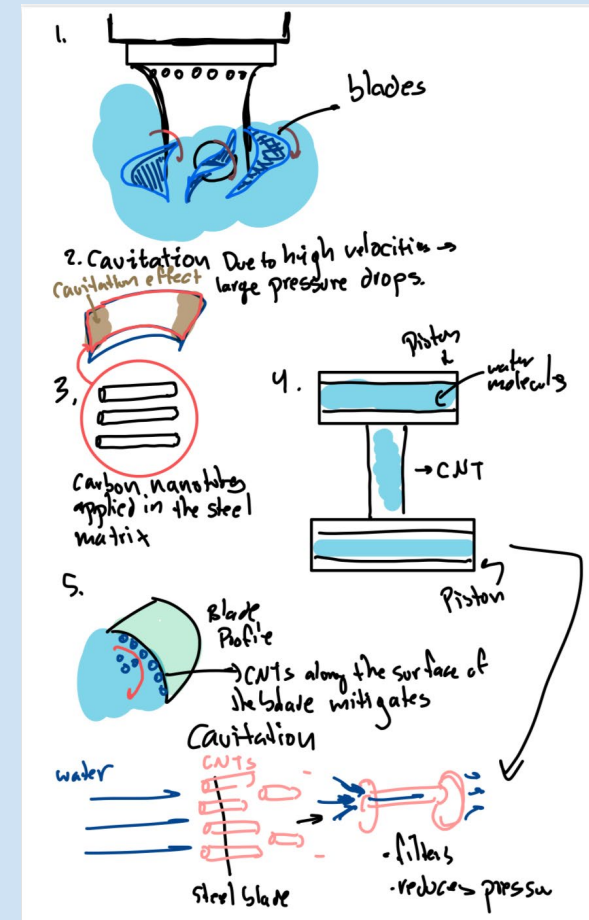 1.
blades
2. Cavitation Due to high velocities →
large pressure drops.
Cavitation effect
3,
Carbon nanotubes
applied in the steel
matrix
4.
Piston
water
molecules
→ CNT
Piston
5.
Blade
Profile
CNTs along the surface of
the blade mitigates
Cavitation
water
CNTs
steel blade
• filters
• reduces pressu